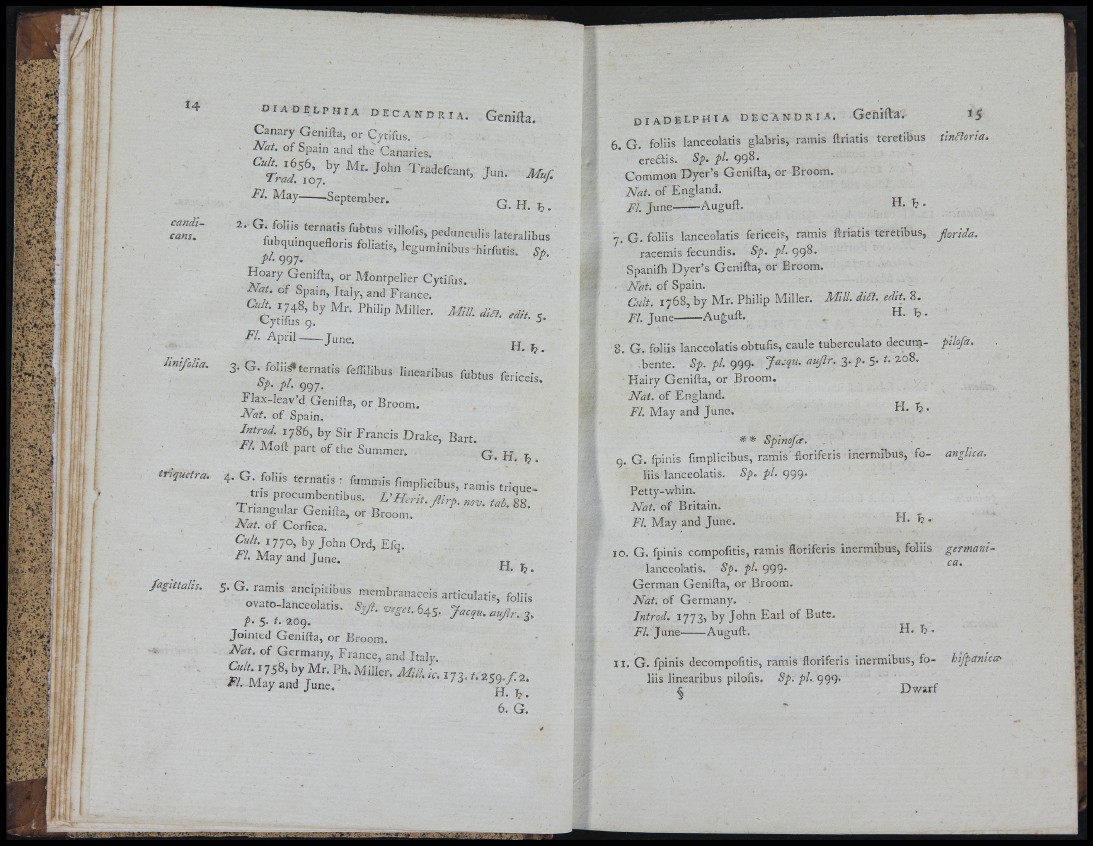 14 DIADELPHIA DECANDRIA. Geniſta.
Canary Geniſta, or Cytiſus.
Nat. of Spain and the Canaries.
Cult. 1656, by Mr. John Tradeſcant, Jun. Muſ.
Trad. 107.
Fl. May——September. G. H. ♄.
candi-
cans.
2. G. foliis ternatis ſubtus villoſis, pedunculis lateralibus
ſubquinquefloris foliatis, leguminibus hirſutis. Sp.
pl. 997.
Hoary Geniſta, or Montpelier Cytiſus.
Nat. of Spain, Italy, and France.
Cult. 1748, by Mr. Philip Miller. Mill. dict. edit. 5.
Cytiſus 9.
Fl. April——June. H. ♄.
linifolia. 3. G. foliis ternatis ſeſſilibus linearibus ſubtus ſericeis.
Sp. pl. 997.
Flax-leav'd Geniſta, or Broom.
Nat. of Spain.
Introd. 1786, by Sir Francis Drake, Bart.
Fl. Moſt part of the Summer. G. H. ♄.
triquetra. 4. G. foliis ternatis : ſummis ſimplicibus, ramis trique-
tris procumbentibus. L'Herit. ſtirp. nov. tab. 88.
Triangular Geniſta, or Broom.
Nat. of Corſica.
Cult. 1770, by John Ord, Eſq.
Fl. May and June. H. ♄.
ſagittalis. 5. G. ramis ancipitibus membranaceis articulatis, foliis
ovato-lanceolatis. Syſt. veget. 645. Jacqu. auſtr. 3.
p. 5. t. 209.
Jointed Geniſta, or Broom.
Nat. of Germany, France, and Italy.
Cult. 1758, by Mr. Ph. Miller. Mill. ic. 173. t. 259. f. 2.
Fl. May and June. H. ♄.
6. G.
DIADELPHIA DECANDRIA. Geniſta. 15
6. G. foliis lanceolatis glabris, ramis ſtriatis teretibus tinctoria.
erectis. Sp. pl. 998.
Common Dyer's Geniſta, or Broom.
Nat. of England.
Fl. June——Auguſt. H. ♄.
7. G. foliis lanceolatis ſericeis, ramis ſtriatis teretibus, florida.
racemis ſecundis. Sp. pl. 998.
Spaniſh Dyer's Geniſta, or Broom.
Nat. of Spain.
Cult. 1768, by Mr. Philip Miller. Mill. dict. edit. 8.
Fl. June——Auguſt. H. ♄.
8. G. foliis lanceolatis obtuſis, caule tuberculato decum- piloſa.
bente. Sp. pl. 999. Jacqu. auſtr. 3. p. 5. t. 208.
Hairy Geniſta, or Broom.
Nat. of England.
Fl. May and June. H. ♄.
** Spinoſæ.
9. G. ſpinis ſimplicibus, ramis floriferis inermibus, fo- anglica.
liis lanceolatis. Sp. pl. 999.
Petty-whin.
Nat. of Britain.
Fl. May and June. H. ♄.
10. G. ſpinis compoſitis, ramis floriferis inermibus, foliis germani-
lanceolatis. Sp. pl. 999. ca.
German Geniſta, or Broom.
Nat. of Germany.
Introd. 1773, by John Earl of Bute.
Fl. June——Auguſt. H. ♄.
11. G. ſpinis decompoſitis, ramis floriferis inermibus, fo- hiſpanica.
liis linearibus piloſis. Sp. pl. 999.
§ Dwarf